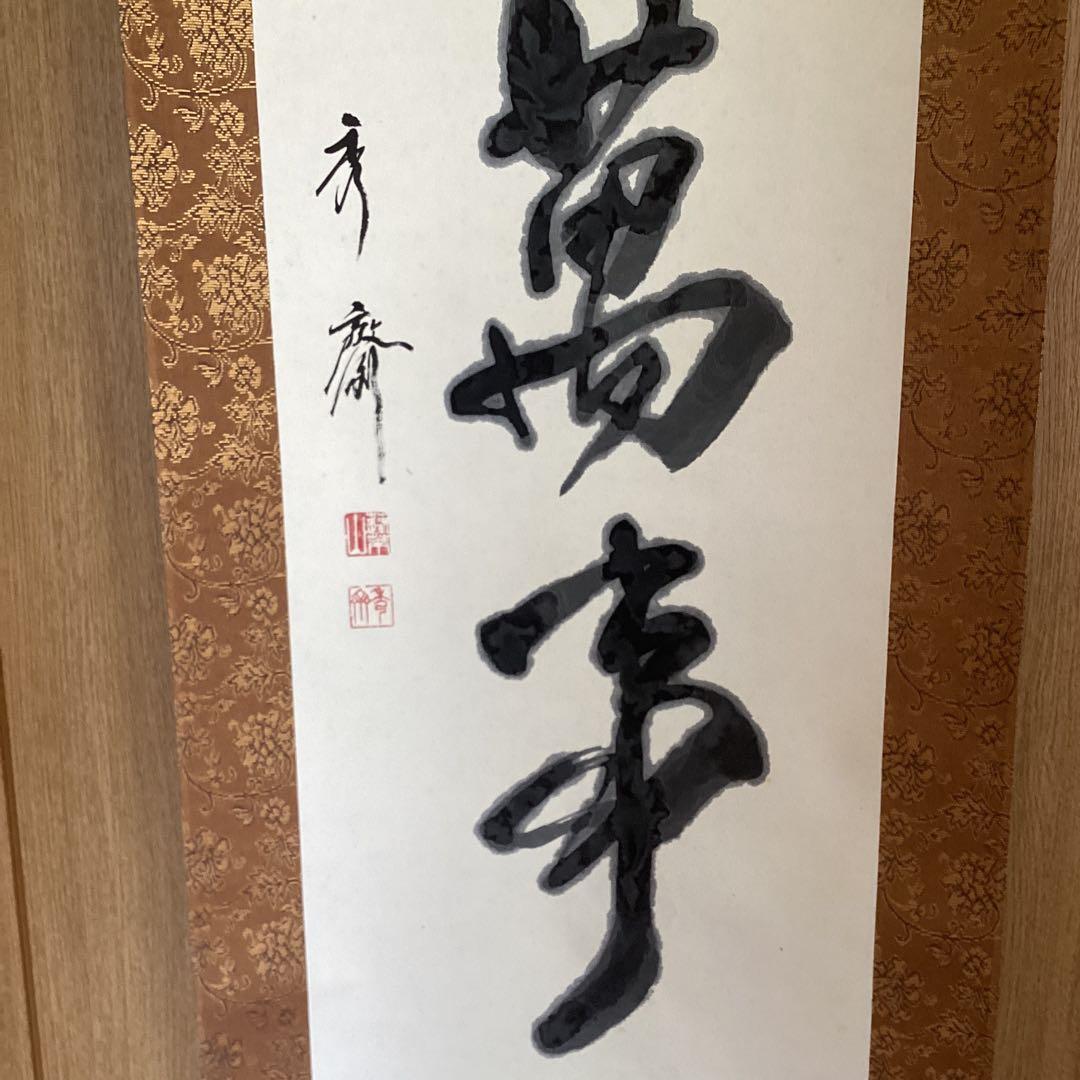 萬事
秀齋